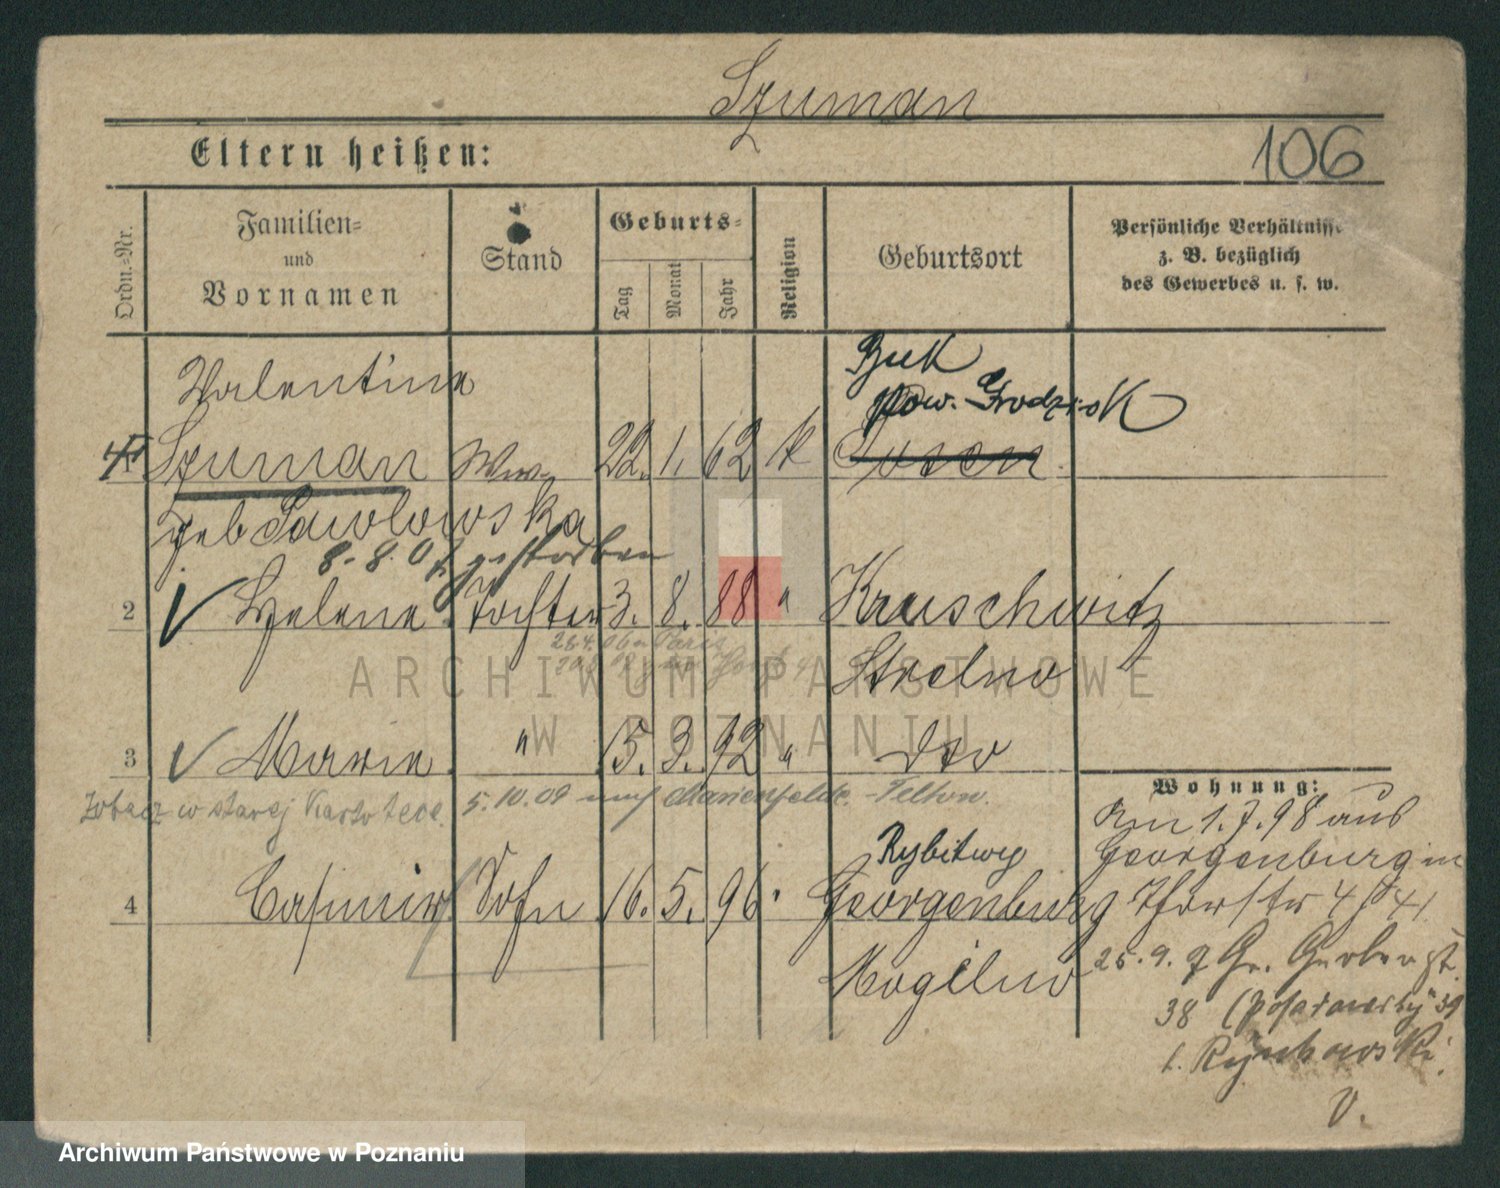 Szuman
Eltern heißen:
106
Ordn.-Nr.
Familien-
und
Vornamen
Stand
Geburts-
Tag
Monat
Jahr
Religion
Geburtsort
Persönliche Verhältnisse
z. B. bezüglich
des Gewerbes u. s. w.
Valentine
Buk
pow. Grodzisk
Szuman Ww. 22. 1. 62 k Posen
geb Pawlowska
8. 8. 07 gestorben
2 Helene Tochter 3. 8. 88 " Kruschwitz
Strelno
3 Marie " 15. 3. 92 " dto
Zobacz w starej Kartotece. 5.10.09 auf Marienfelde - Teltow.
Wohnung:
Am 1.7.98 aus
Rybitwy
Georgenburg in
4 Casimir Sohn 16. 5. 96 " Georgenburg Thorstr 4 41
Mogilno
25.9. Gr. Gerberst.
38
1. Rychowski
V.
ARCHIWUM PAŃSTWOWE
W POZNANIU
Archiwum Państwowe w Poznaniu